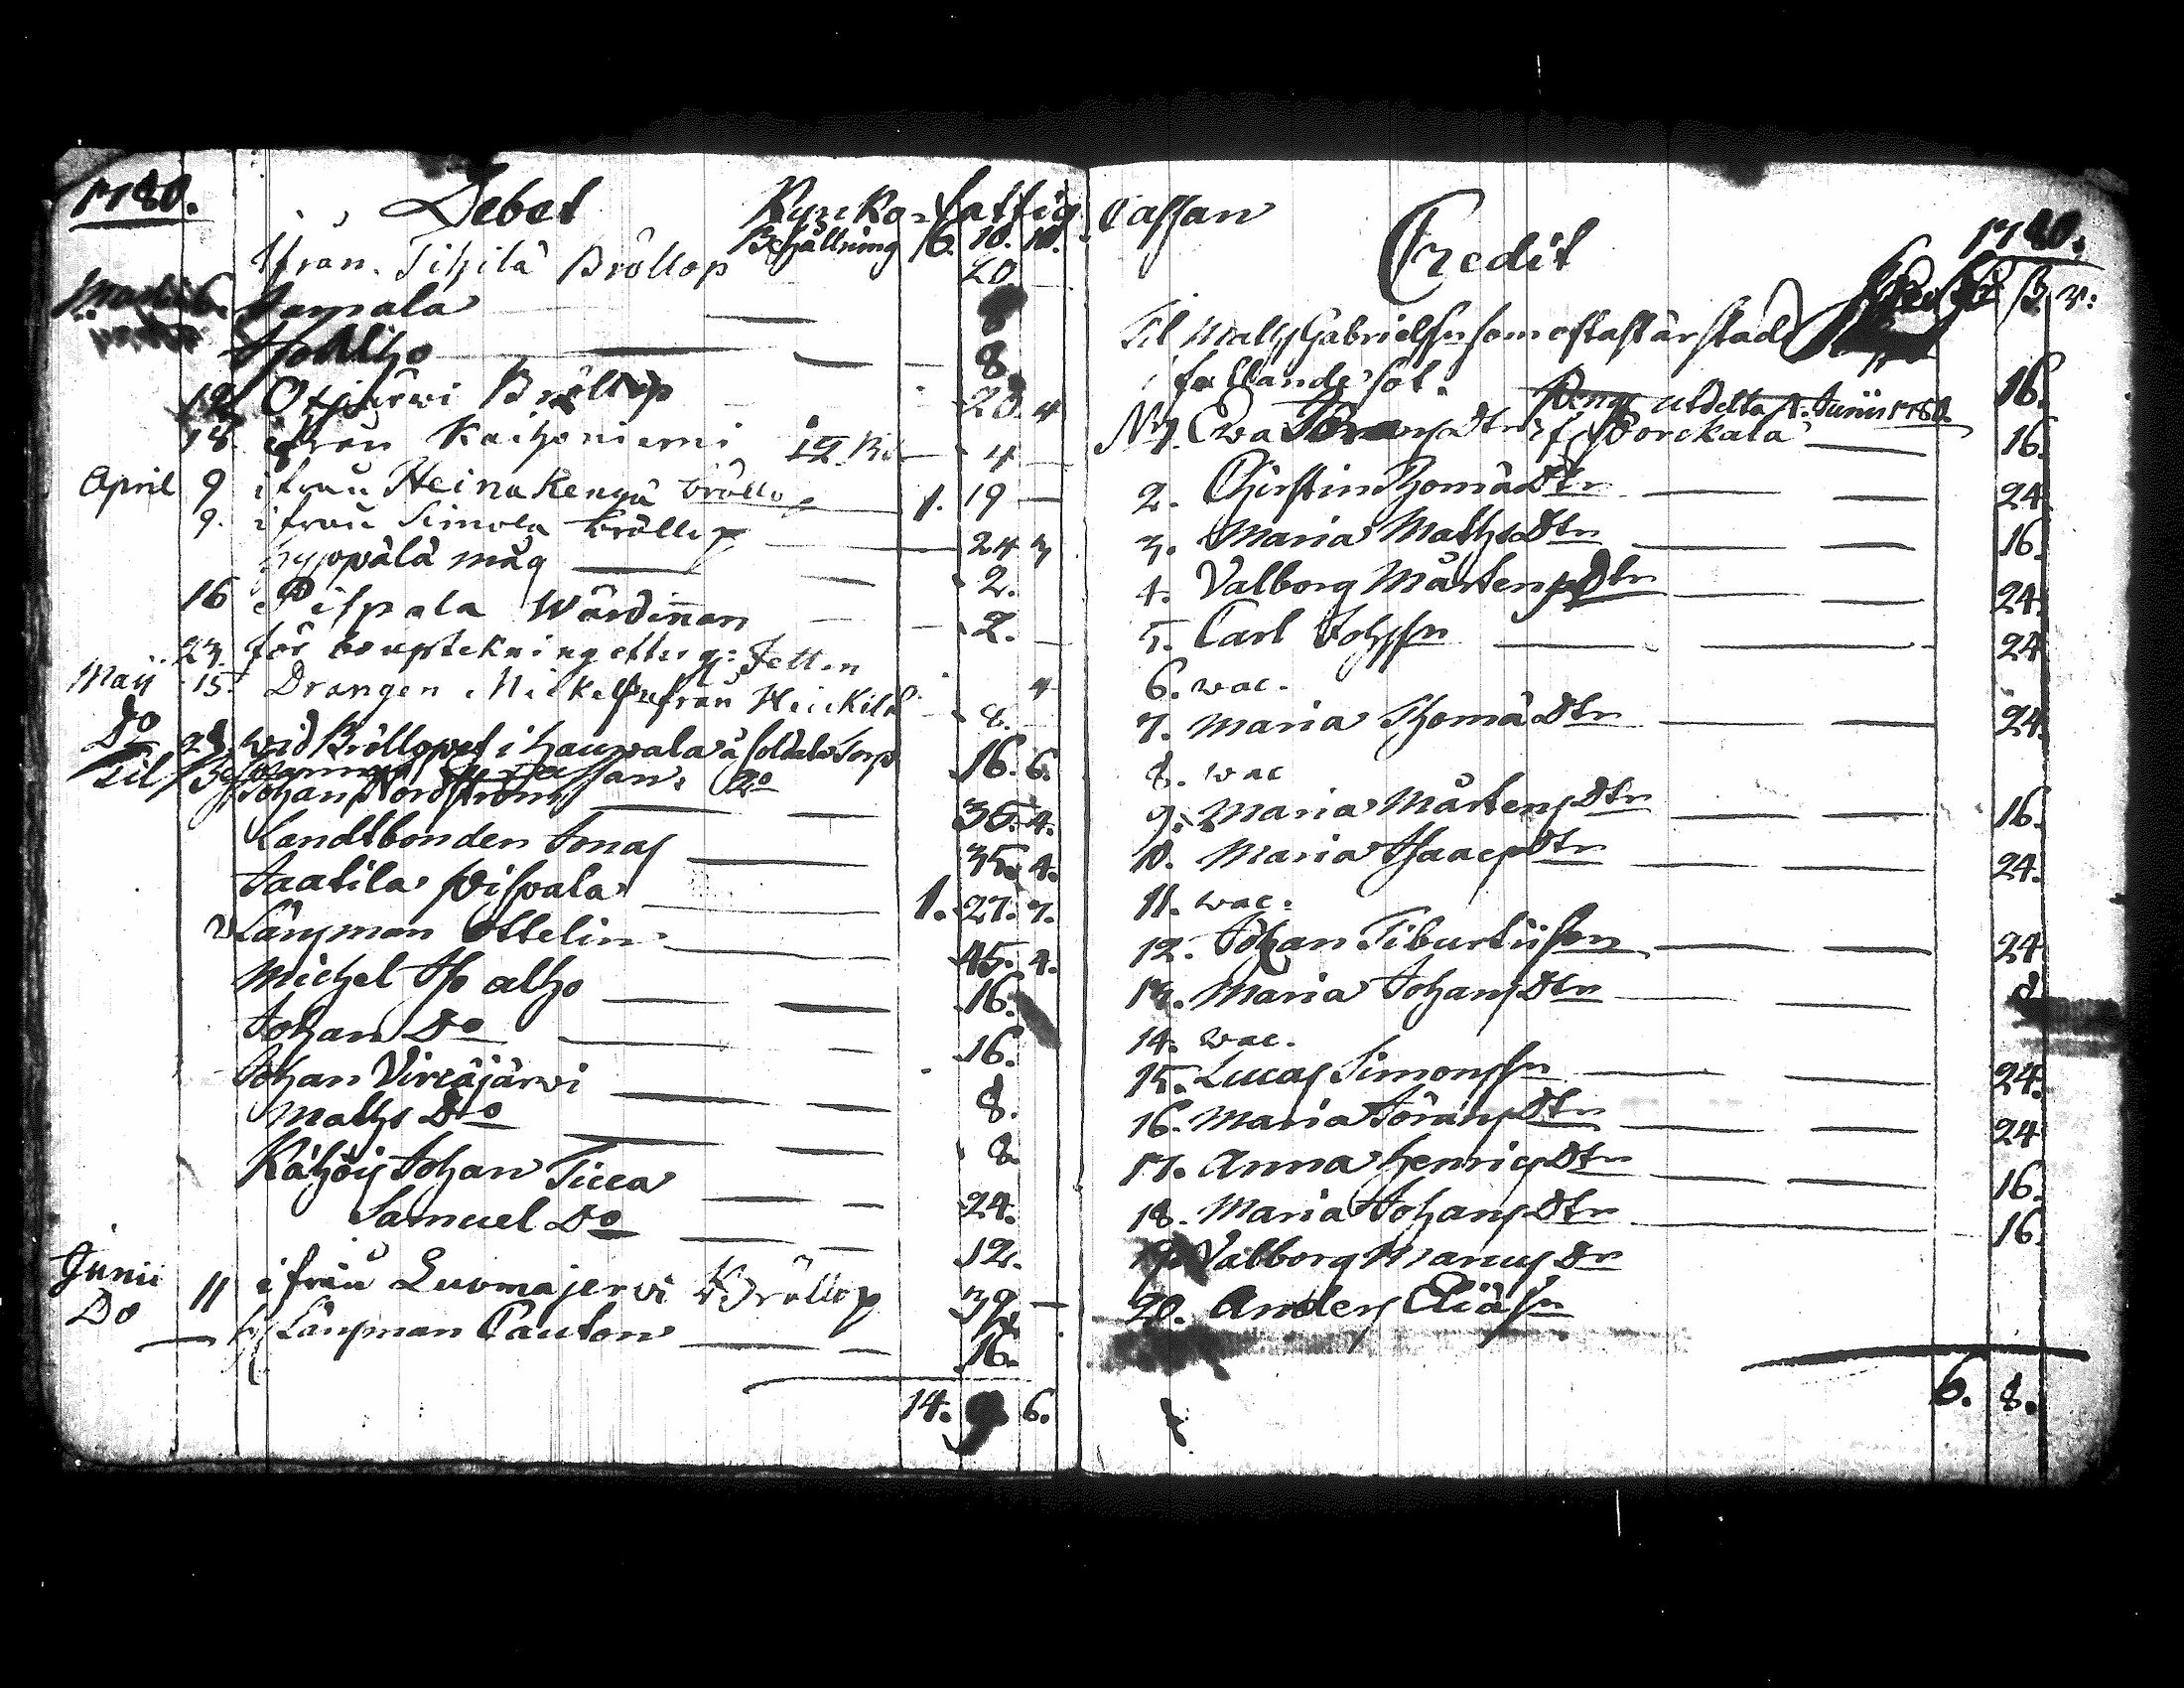 1780. Debet Kyrcko-fattig
Behållning 6. 10. 10.
Ifrån Tihilä Bröllop 20.
Martii 6. Jampala 8
Isoalho 8.
12 Otjärwi Bröllop 20. 4
18 ifrån Kaihoniemi 4
April 9 ifrån Heinäkengä bröllop 1. 19
9. ifrån Simola bröllop 24 3
Hyppälä måg 2.
16 Pispala Wärdinnan 2.
23. för bouptekning efter
Maij 15. Drängen Mickel ifrån Heickilä 8.
Do 28 wid Bröllopet i Haupala å soldats Torp 16. 6.
Til
Johan Nordström 35. 4.
Landtbonden Jonas 35. 4.
Jaatila Pispala 1. 27. 7.
Länsman Ottelin 45. 4.
Michel Isoalho 16.
Johan Do 16.
Johan Vircäjärwi 8.
Maths Do 8.
Kähöis Johan Ticca 24.
Samuel Do 12.
Junii 11 ifrån Luomajerwi Bröllop 39
Do Länsman Pauton 16.
14. 9. 6.
Cassan
Credit 1780.
Til Maths Gabrielsson som oftast är stadd
i fallande sot. 16.
utdelta Junii 1780.
N:1. Ewa Dtr f. Porckala 16.
2. Christin Thomä Dtr 24
3. Maria Maths Dtr 16.
4. Valborg Mårtens Dtr 24.
5. Carl Johsson 24
6. vac.
7. Maria Thomä Dtr 24.
8. vac
9. Maria Mårtens Dtr 16.
10. Maria Isaacs Dtr 24.
11. vac.
12. Johan Tiburtiison 24
13. Maria Johans Dtr 8
14. vac.
15. Lucas Simonsson 24.
16. Maria Jörans Dtr 24
17. Anna Henrics Dtr 16.
18. Maria Johans Dtr 16.
19. Valborg Marcus Dr
20. Anders Eliäson
6. 8.